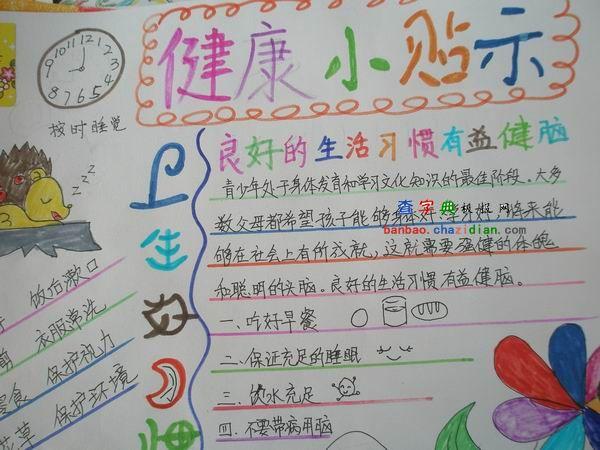 健康小贴示
10 11 12 1 2 3 4 5 6 7 8 9
按时睡觉
zzz
卫生
饭后漱口
剪 衣服常洗
零食 保护视力
花草 保护环境
良好的生活习惯有益健脑
青少年处于身体发育和学习文化知识的最佳阶段。大多
数父母都希望孩子能够身体好,学习好,将来能
够在社会上有所成就,这就需要强健的体魄
和聪明的头脑。良好的生活习惯有益健脑。
一、吃好早餐
二、保证充足的睡眠
三、饮水充足
四、不要带病用脑
查字典 手抄报网
banbao.chazidian.com